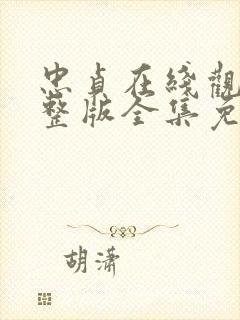 忠貞在綫觀
整版全集免
胡潇